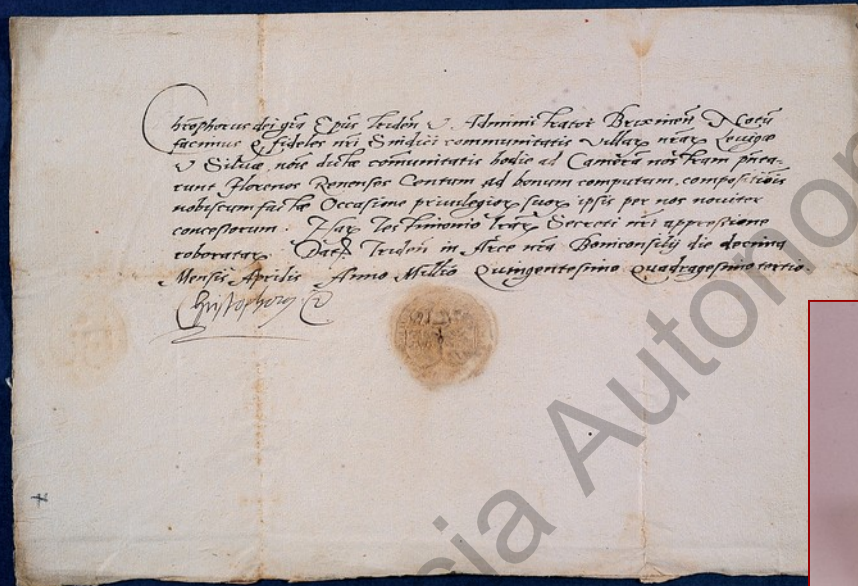 Chrophorus dei grã Epũs Triden̄ & Administrator Brixineñ Notũ
facimus q̃ fideles nr̃i Sindici communitatis Villaꝝ nr̃aꝝ Leuigo
& Siluæ, noīe dictæ comũnitatis hodie ad Camerã nostram
runt Florenos Renenses Centum ad bonum computum, compositiõis
nobiscum factæ Occasione privilegioꝝ suoꝝ ipsis per nos noviter
concessorum. Haꝝ Testimonio lr̃aꝝ Secreti nr̃i appressione
roborataꝝ. Dat̃ Triden̄ in Arce nr̃a Boniconsilij die decima
Mensis Aprilis Anno Millīo Quingentesimo Quadragesimo tertio.
cia Autono